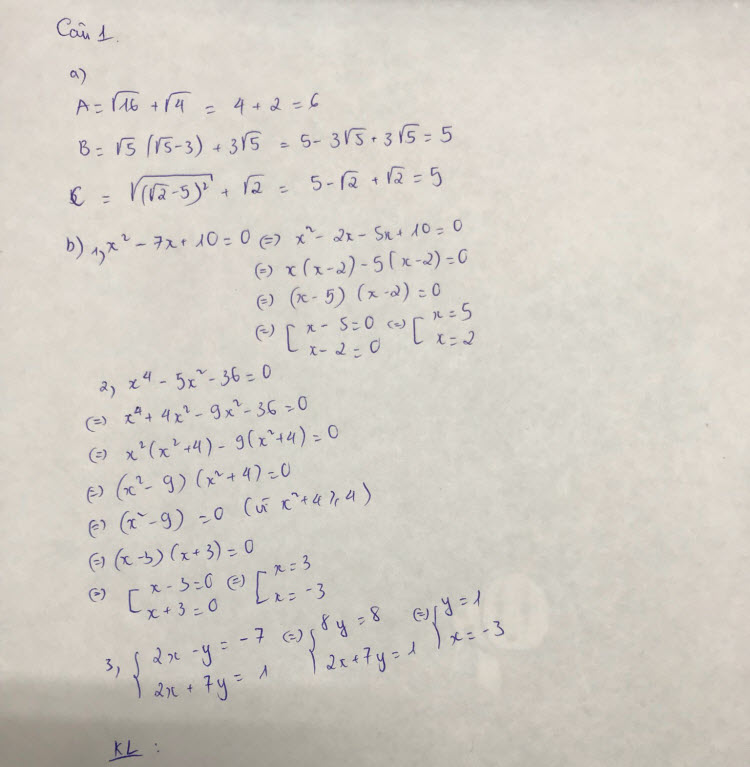 Câu 1.
a)
A = √16 + √4 = 4 + 2 = 6
B = √5 (√5-3) + 3√5 = 5 - 3√5 + 3√5 = 5
C = √((√2-5)²) + √2 = 5-√2 + √2 = 5
b) 1, x² - 7x + 10 = 0 (=) x² - 2x - 5x + 10 = 0
(=) x(x-2) - 5(x-2) = 0
(=) (x-5) (x-2) = 0
(=) [ x - 5 = 0 (=) [ x = 5
x - 2 = 0 x = 2
2, x⁴ - 5x² - 36 = 0
(=) x⁴ + 4x² - 9x² - 36 = 0
(=) x²(x²+4) - 9(x²+4) = 0
(=) (x² - 9) (x²+4) = 0
(=) (x² - 9) = 0 (vì x²+4 ⩾ 4)
(=) (x-3) (x+3) = 0
(=) [ x - 3 = 0 (=) [ x = 3
x + 3 = 0 x = -3
3, { 2x - y = -7 (=) { 8y = 8 (=) { y = 1
2x + 7y = 1 2x + 7y = 1 x = -3
KL :